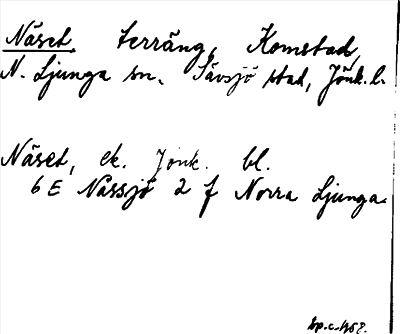 Näset, terräng, Komstad,
N. Ljunga sn, Sävsjö stad, Jönk. l.
Näset, ek. Jönk. bl.
6 E Nässjö 2 f Norra Ljunga.